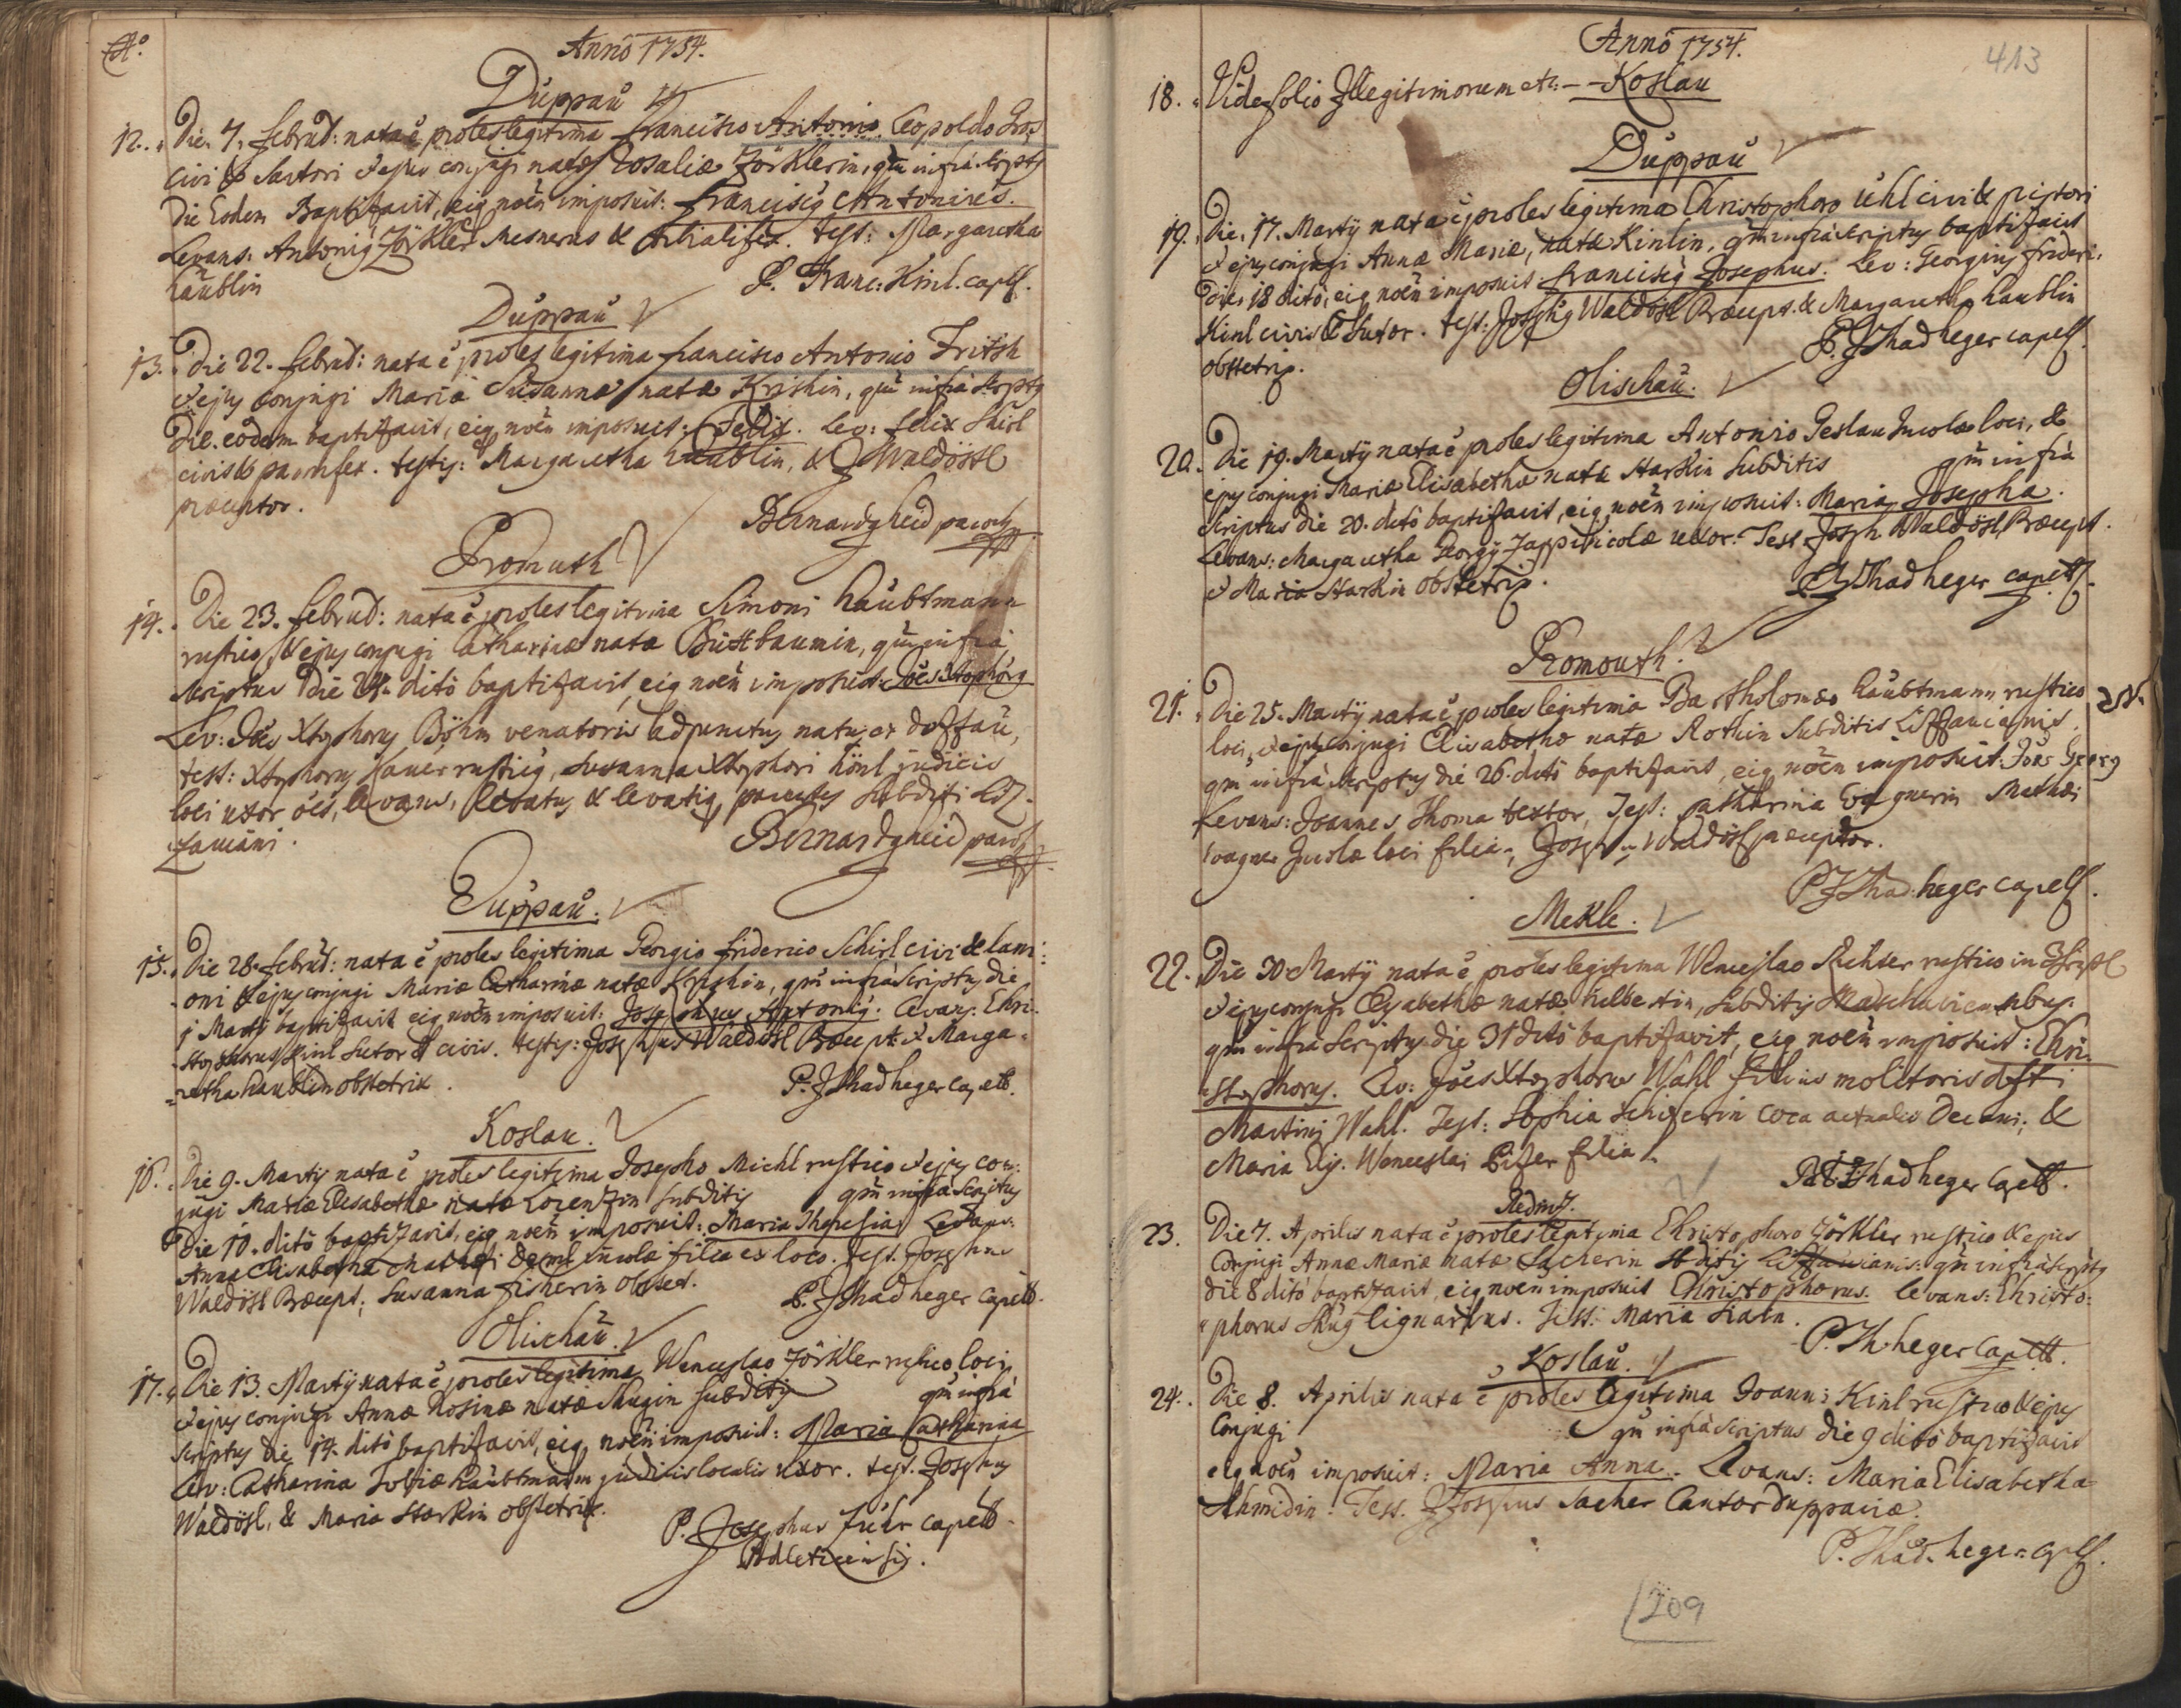 Aº.
Anno 1754.
Duppau
12. Die 7. febru: nata ê proles legitima Francisco Antonio Leopoldo
civi & Sartori & ejus conjugi natæ Rosaliæ Zörklerin, qm̄ infra scriptg
die Eodem Baptizavit, eig noē̄n imposuit: Francisciġ Antonius.
Levans: Antonig Zörkler Mesnerus & . Test: Margaretha
Haüblin
P. Franc: Kinl. capll.
Duppau
13. Die 22. febru: nata ê proles legitima Francisco Antonio Fritsh
& ejus conjugi Maria Susannæ natæ Krishin, qm̄ infra scriptg
Die eodem baptizavit, eig noēn imposuit: Felix. Lev: Felix Shirl
civis & panifex. testes: Margaretha Haublin, & J Waldösl
præceptor.
Bernardg heid paroch
Promuth
14. Die 23. febru: nata ê proles legitima Simoni Haübtmann
rustico, & ejus conjugi Catharinæ nata Bustbaumin, qm̄ infra
scriptus Die 24. ditô baptizavit, eig noēn imposuit: Jões Xtophorg
Lev: Jões Xtophorus Böhm venatoris adjunctus natus ex doffau,
test: Xtophorus Hauer rusticg, Susanna Xtophori Hönl judicis
loci uxor oēs, levans, levatus & levatig parentes subditi Liz-
zauiani.
Bernardg heid paroch
Duppau.
15. Die 28. febru: nata ê proles legitima Georgio friderico Schirl civi & lani-
oni & ejus conjugi Mariæ Catharinæ natæ Krishin, qm̄ infra scriptus die
1 Marty baptizavit eig noēn imposuit: Josephus Antonig. Levans: Chri-
stophorus Kinl Sutor & civis. testes: Josephus Waldösl Præcept. & Marga-
retha Haublin obstetrix.
P. J Thad heger Capell.
Koslau.
16. Die 9. Marty nata ê proles legitima Josepho Michl rustico & ejus con-
jugi Mariæ Elisabethæ natæ Lorenzin subditis qm̄ infra Scriptus
Die 10. ditô baptizavit, eig noēn imposuit: Maria Theresia. Levans:
Anna Elisabetha Mathei Deml incolæ filia ex loco. test. Josephus
Waldösl Præcept; Susanna Fisherin Obstet.
P. J Thad heger Capell.
Olischau.
17. Die 13. Marty nata ê proles legitima Wenceslao Zörkler rustico loci,
& ejus conjugi Annæ Rosinæ natæ Shugin subditis qm̄ infra
scriptus die 14. ditô baptizavit, eig noēn imposuit: Maria Catharina
Lev: Catharina Tobiæ Haübtmann judicis localis uxor. test. Josephus
Waldösl, & Maria Starkin obstetrix.
P. Josephus Führ capell.
Adletzensis.
Anno 1754.
413
18. Vide folio Illegitimorum etc: – – Koslau
Duppau
19. Die 17. Marty nata ê proles legitima Christophoro Uhl civi & pistori
& ejus conjugi Annæ Mariæ, natæ Kinlin, qm̄ infra scriptus baptizavit
Die 18 ditô, eig noēn imposuit: Francisciġ Josephus. Lev: Georgius frideri:
Kinl civis & Sutor. test: Josephg Waldösl Præcept. & Margaretha Haublin
obstetrix.
P. J Thad heger capell.
Olischau.
20. Die 19. Marty nata ê proles legitima Antonio Teslau Incolæ loci, &
ejus conjugi Mariæ Elisabethæ natæ Starkin Subditis qm̄ infra
Scriptus die 20. ditô baptizavit, eig noēn imposuit: Maria Josepha.
Levans: Margaretha Georgy Zapp incolæ uxor. Test Joseph Waldösl Præcept.
& Maria Starkin Obstetrix.
P. J Thad heger capell.
Promouth.
21. Die 25. Marty nata ê proles legitima Bartholomæo Haübtmann rustico
loci, & ejus conjugi Elisabethæ natæ Rothin Subditis Lizzauianis.
qm̄ infra scriptus die 26. ditô baptizavit, eig noēn imposuit: Jões Georg
Levans: Joannes Thoma textor, Test: Catharina Wagnerin Mathæi
Wagner Incolæ loci filia, Joseph Waldösl præceptor.
P J Thad: heger capell.
Mekle.
22. Die 30 Marty nata ê proles legitima Wenceslao Richter rustico in
& ejus conjugi Elisabethæ natæ , subditis
qm̄ infra Scriptus die 31 ditô baptizavit, eig noēn imposuit: Chri-
stophorus. Lev: Jões Xtophorus Wahl filius molitoris dfti
Martini Wahl. Test: Sophia Schiferin coca actualis Decani; &
Maria Elis. Wenceslai Pitzer filia.
P. J Thad heger Capell.
Redniz.
23. Die 7. Aprilis nata ê proles legitima Christophoro Zörkler rustico & ejus
Conjugi Annæ Mariæ natæ Sacherin Sditis Lizzauianis: qm̄ infra scriptg
die 8 ditô baptizavit, eig noēn imposuit Christophorus. levans: Christo-
phorus Shug lignarius. Test: Maria .
P. Th. heger Capell.
Koslau.
24. Die 8. Aprilis nata ê proles legitima Joanni Kinl rustico & ejus
Conjugi qm̄ infra scriptus die 9 ditô baptizavit
eig noēn imposuit: Maria Anna. Levans: Maria Elisabetha
Shmidin. Tess. Josephus Sacher Cantor Duppaviæ.
P. Thad. heger Capll.
209